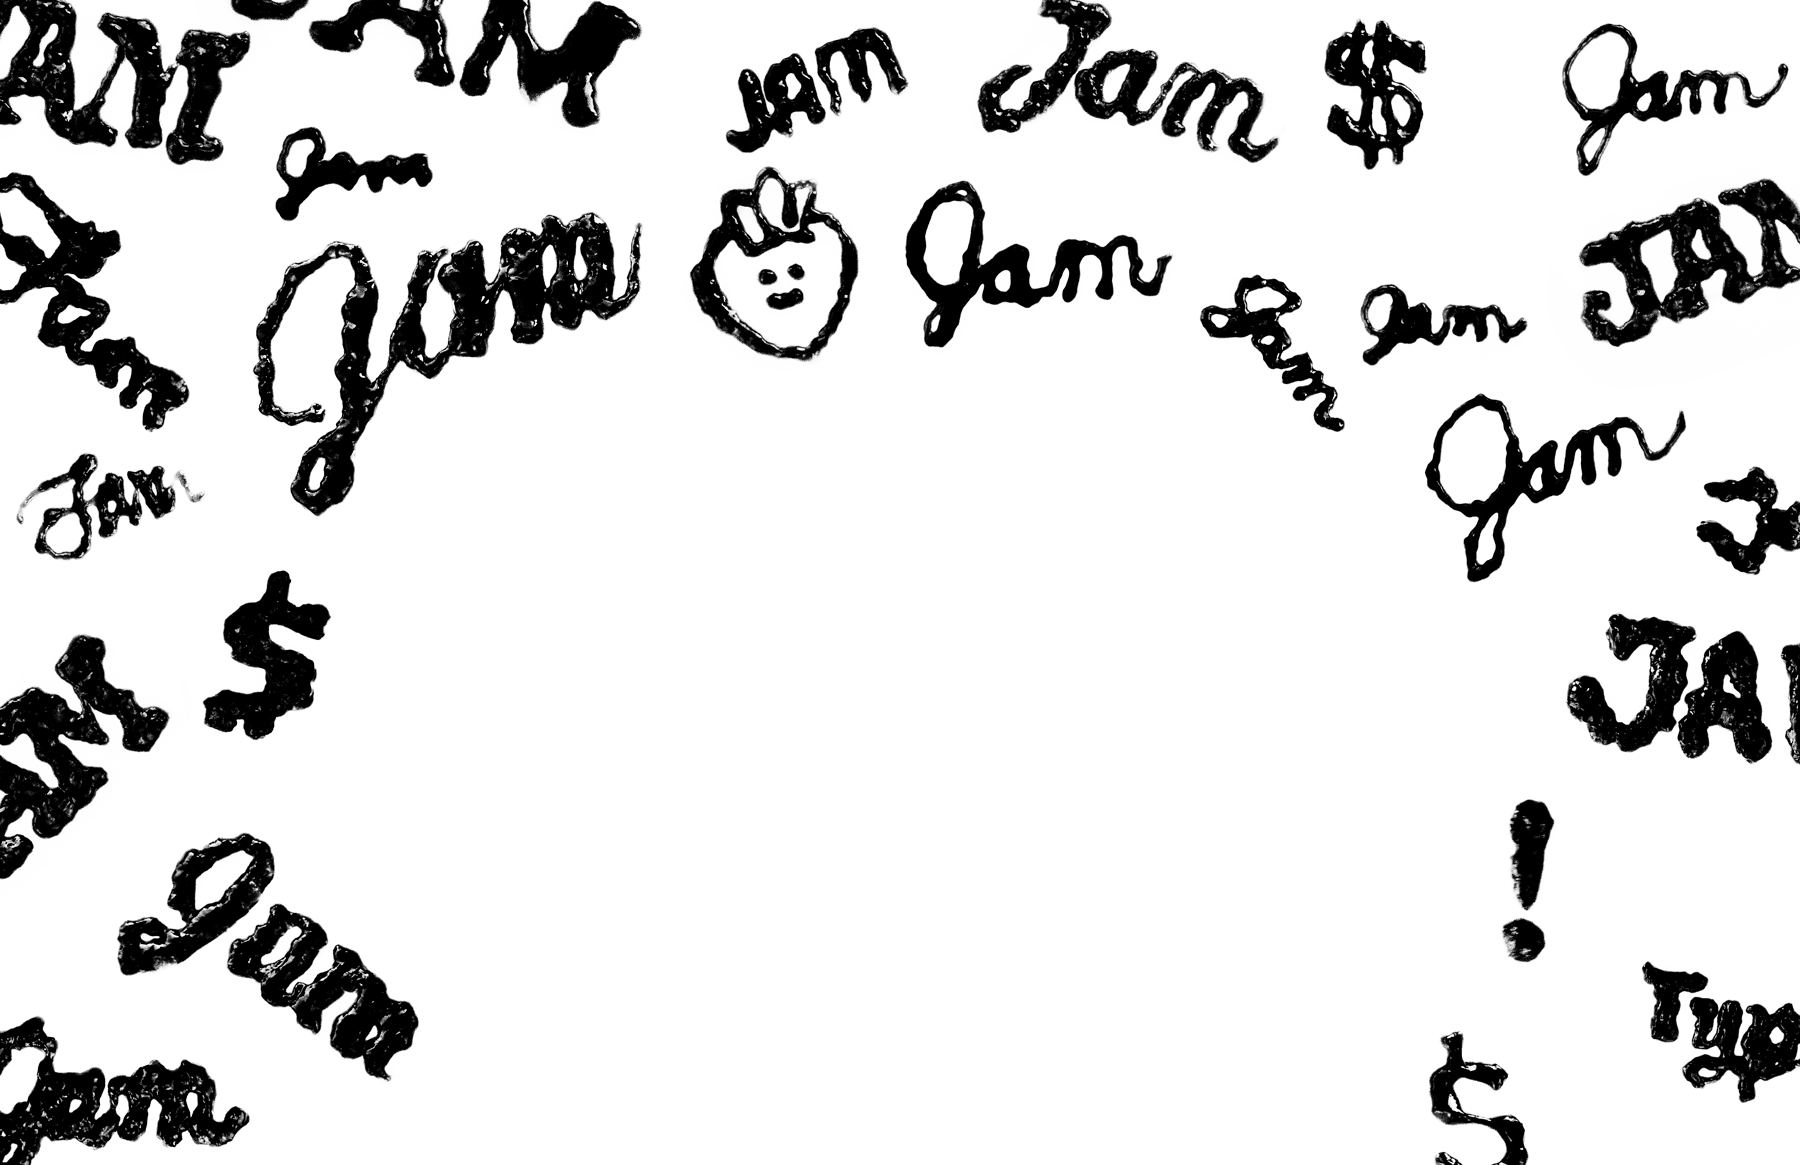 AM
AM
Jam
Jam
$
Jam
Jam
Jam
Jam
Jam
JAM
Jam
Jam
Jam
Jam
Jam
$
JA
AM
!
Jam
Typ
Jam
$